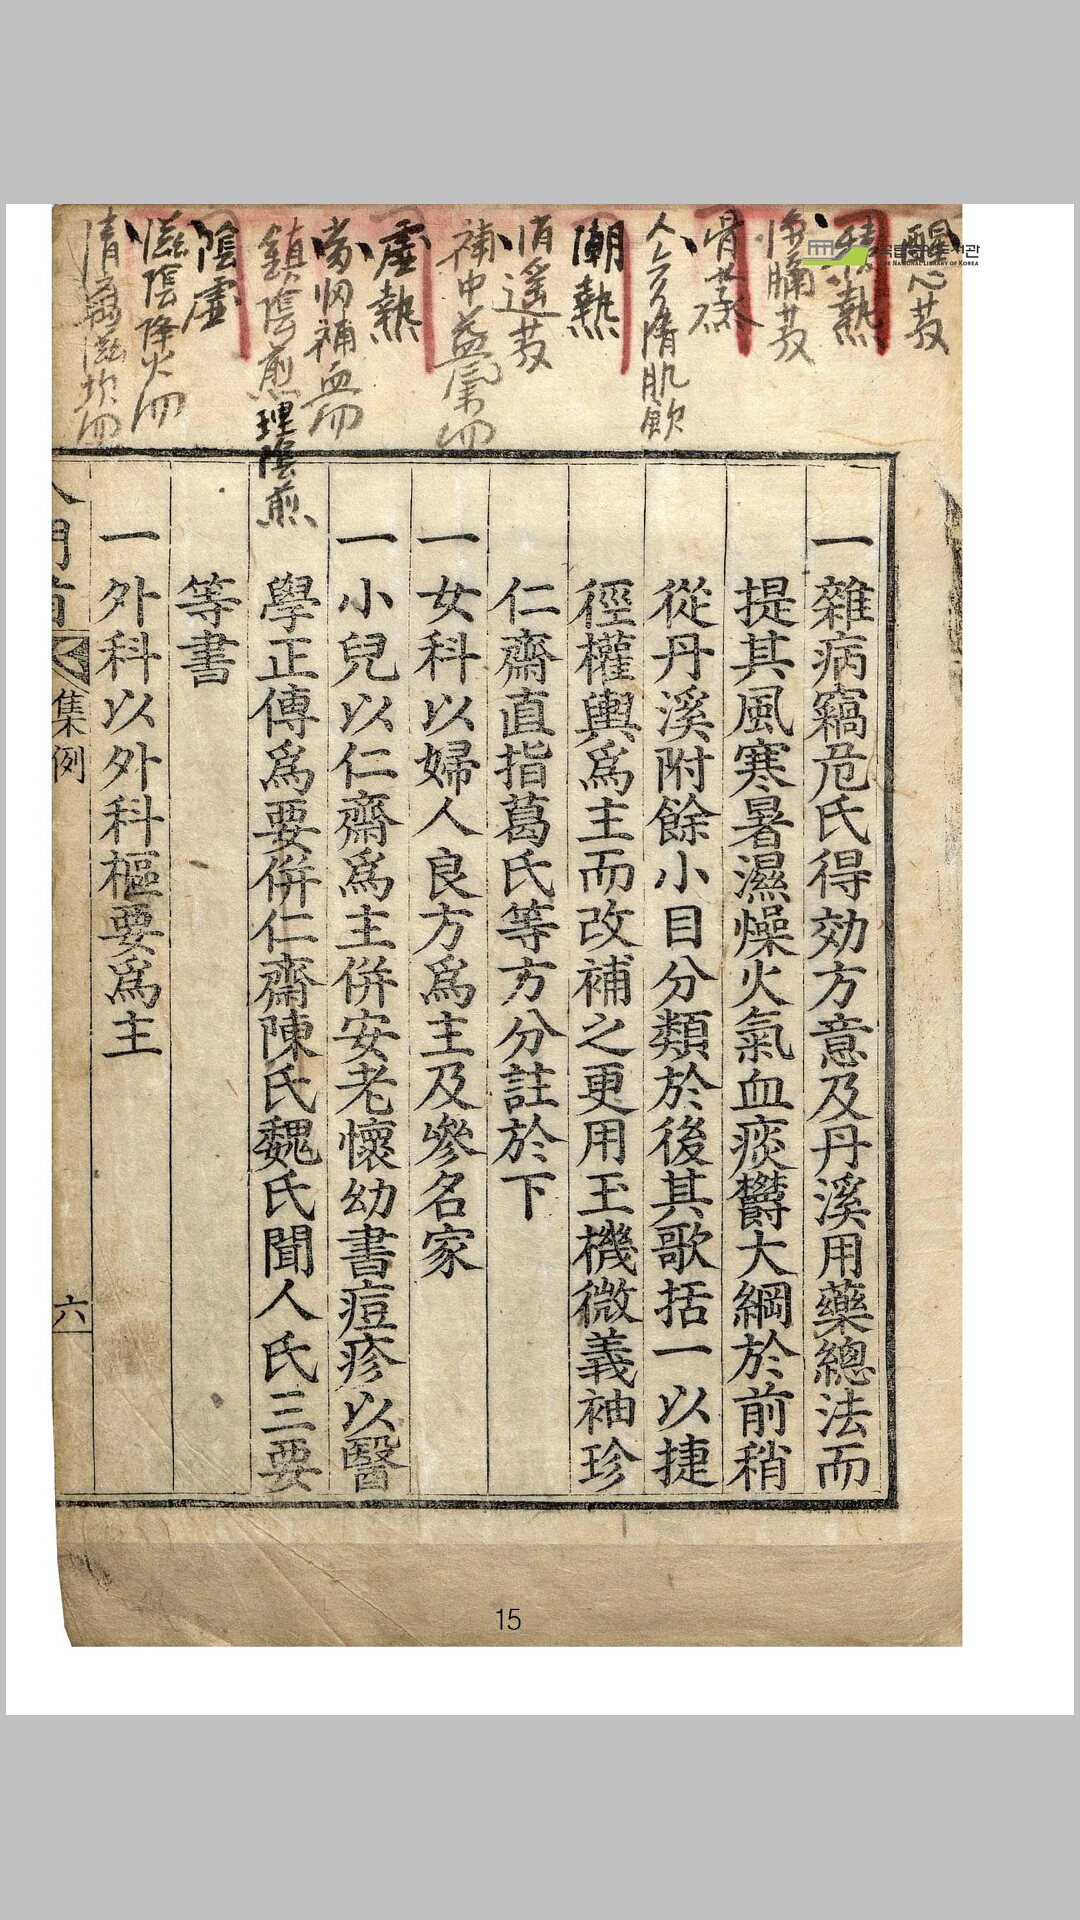 醒心散
積熱
凉膈散
骨蒸
人參清肌飮
潮熱
逍遙散
補中益氣湯
虛熱
當歸補血湯
鎮陰煎 理陰煎
陰虛
滋陰降火湯
清离滋坎湯
THE NATIONAL LIBRARY OF KOREA
一雜病竊危氏得効方意及丹溪用藥總法而
提其風寒暑濕燥火氣血痰欝大綱於前稍
從丹溪附餘小目分類於後其歌括一以捷
徑權輿爲主而改補之更用玉機微義袖珍
仁齋直指葛氏等方分註於下
一女科以婦人良方爲主及參名家
一小兒以仁齋爲主併安老懷幼書痘疹以醫
學正傳爲要併仁齋陳氏魏氏聞人氏三要
等書
一外科以外科樞要爲主
入門首 集例 六
15